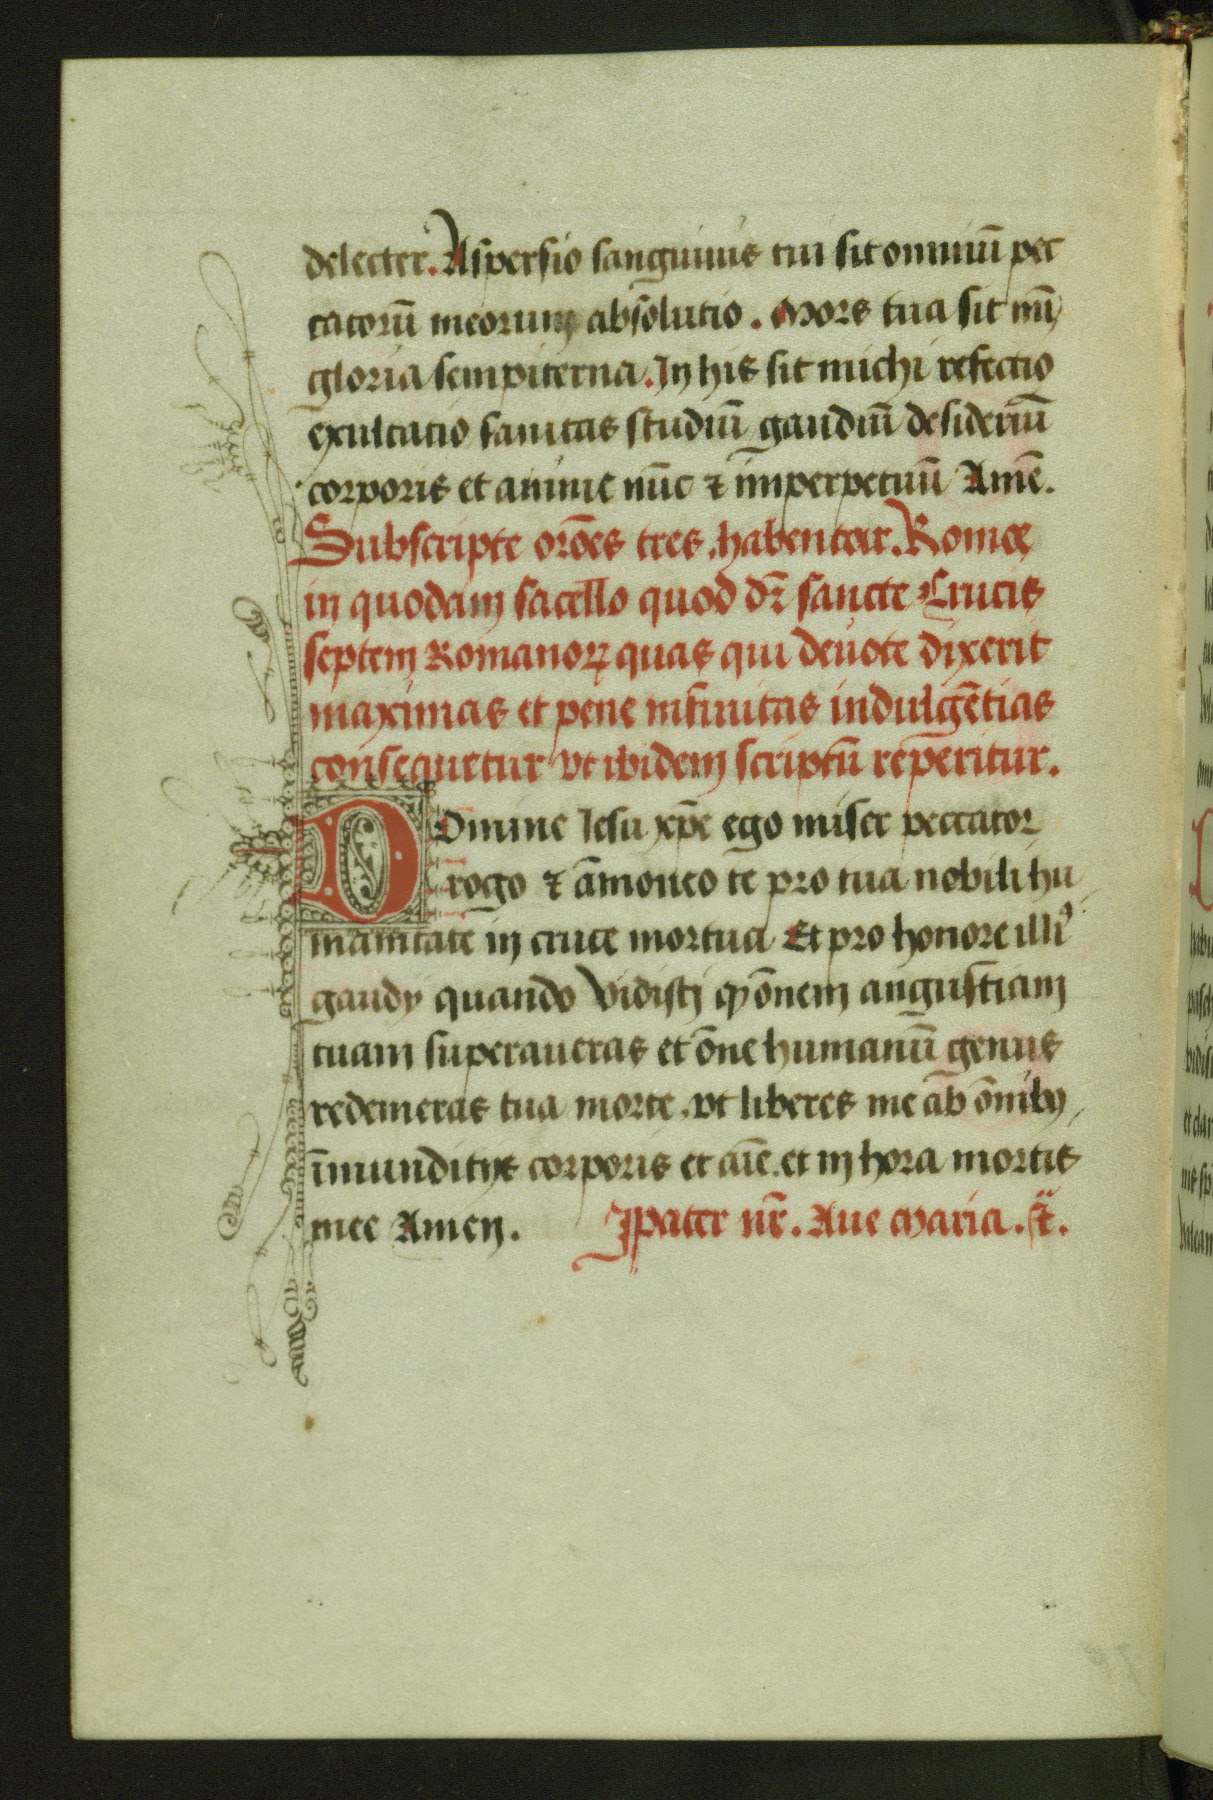 delecter. Aspersio sanguinis tui sit omniū pec
catorū meorum absolutio. Mors tua sit mī
gloria sempiterna. In his sit michi refectio
exultatio sanitas studiū gaudiū desideriū
corporis et anime nūc ⁊ imperpetuū Amē.
Subscripte orōes tres habentur Rome
in quodam sacello quod dr̄ sancte Crucis
septem Romanoꝝ quas qui deuote dixerit
maximas et pene infinitas indulgētias
consequetur vt ibidem scriptū reperitur.
Domine Iesu xp̄e ego miser peccator
rogo ⁊ āmoneo te pro tua nobili hu
manitate in cruce mortua Et pro honore illiꝰ
gaudij quando vidisti ꝙ ōnem angustiam
tuam superaueras et ōne humanū genus
redemeras tua morte, vt liberes me ab ōnibꝫ
īmunditijs corporis et aīe et in hora mortis
mee Amen. Pater nr̄. Aue Maria. ⁊c̄.